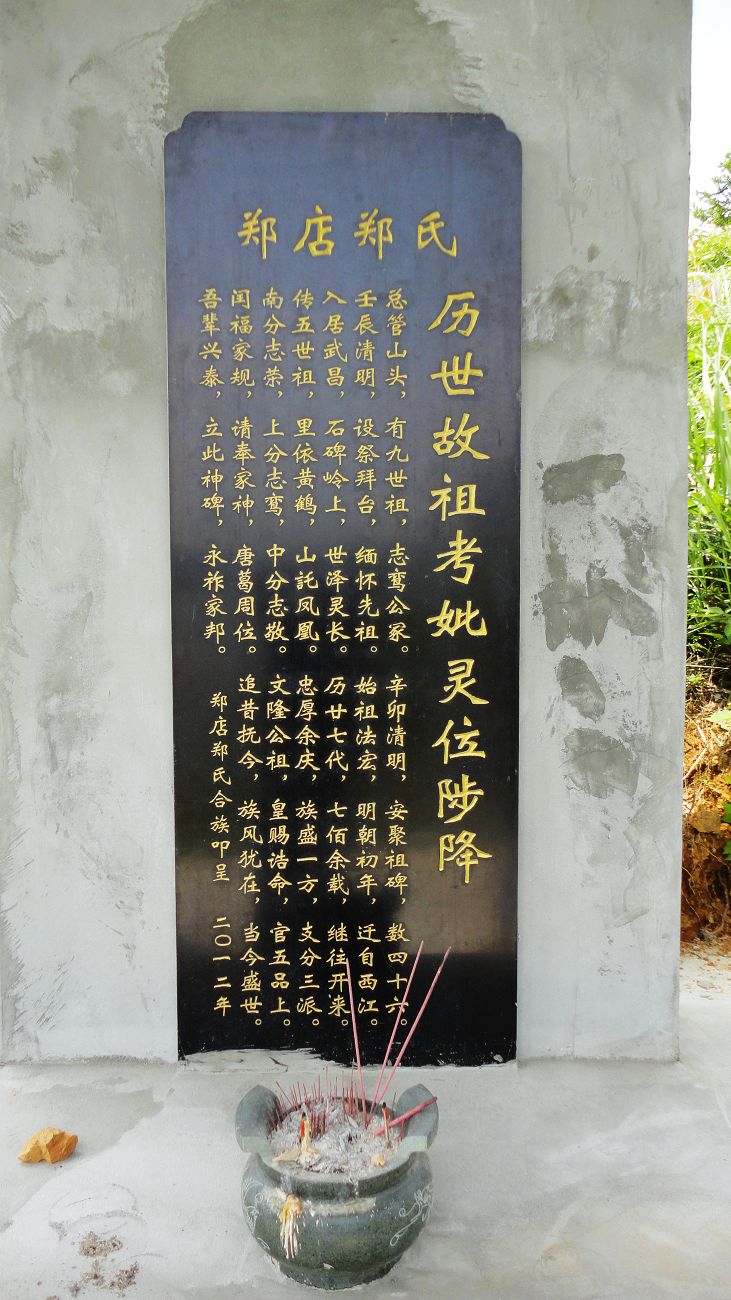 郑店郑氏
历世故祖考妣灵位陟降
总管山头，有九世祖，志鸾公冢。辛卯清明，安聚祖碑，数四十六。
壬辰清明，设祭拜台，缅怀先祖。始祖法宏，明朝初年，迁自西江。
入居武昌，石碑岭上，世泽灵长。历廿七代，七佰余载，继往开来。
传五世祖，里依黄鹤，山託凤凰。忠厚余庆，族盛一方，支分三派。
南分志荣，上分志鸾，中分志敬。文隆公祖，皇赐诰命，官五品上。
闰福家规，请奉家神，唐葛周位。追昔抚今，族风犹在，当今盛世。
吾辈兴泰，立此神碑，永祚家邦。郑店郑氏合族叩呈 二〇一二年